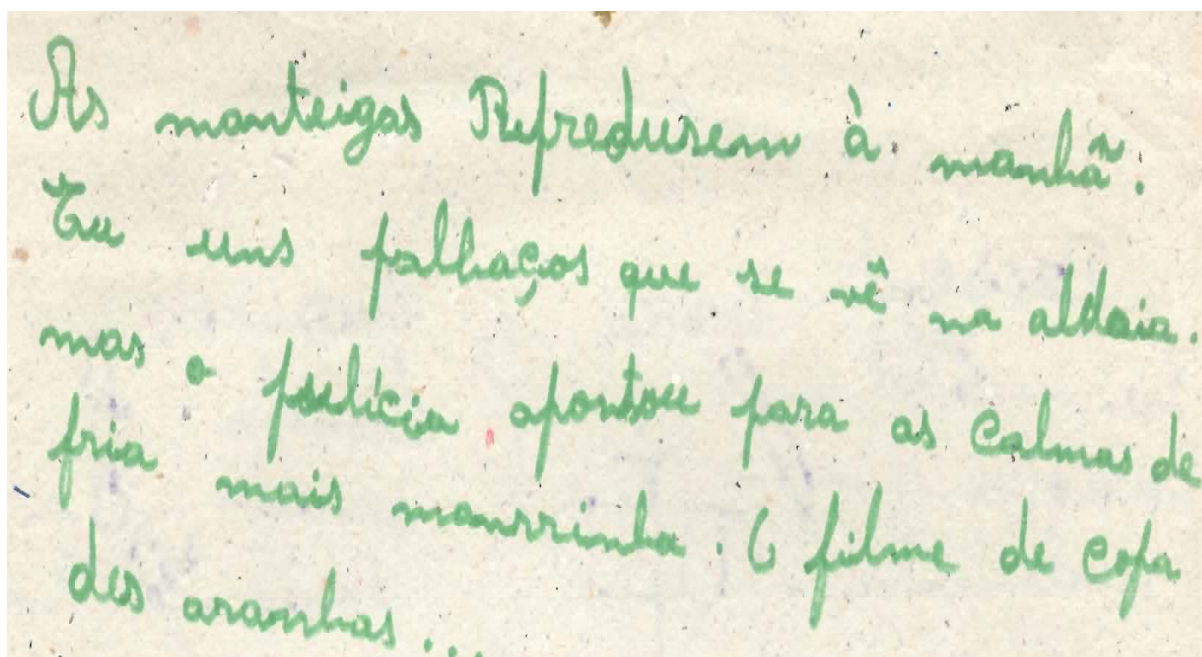 As manteigas Repredusem à manhã.
Eu uns palhaços que se vê na aldaia.
mas o polícia apontou para as calmas de
fria mais manrrinha. O filme de copa
des aranhas...